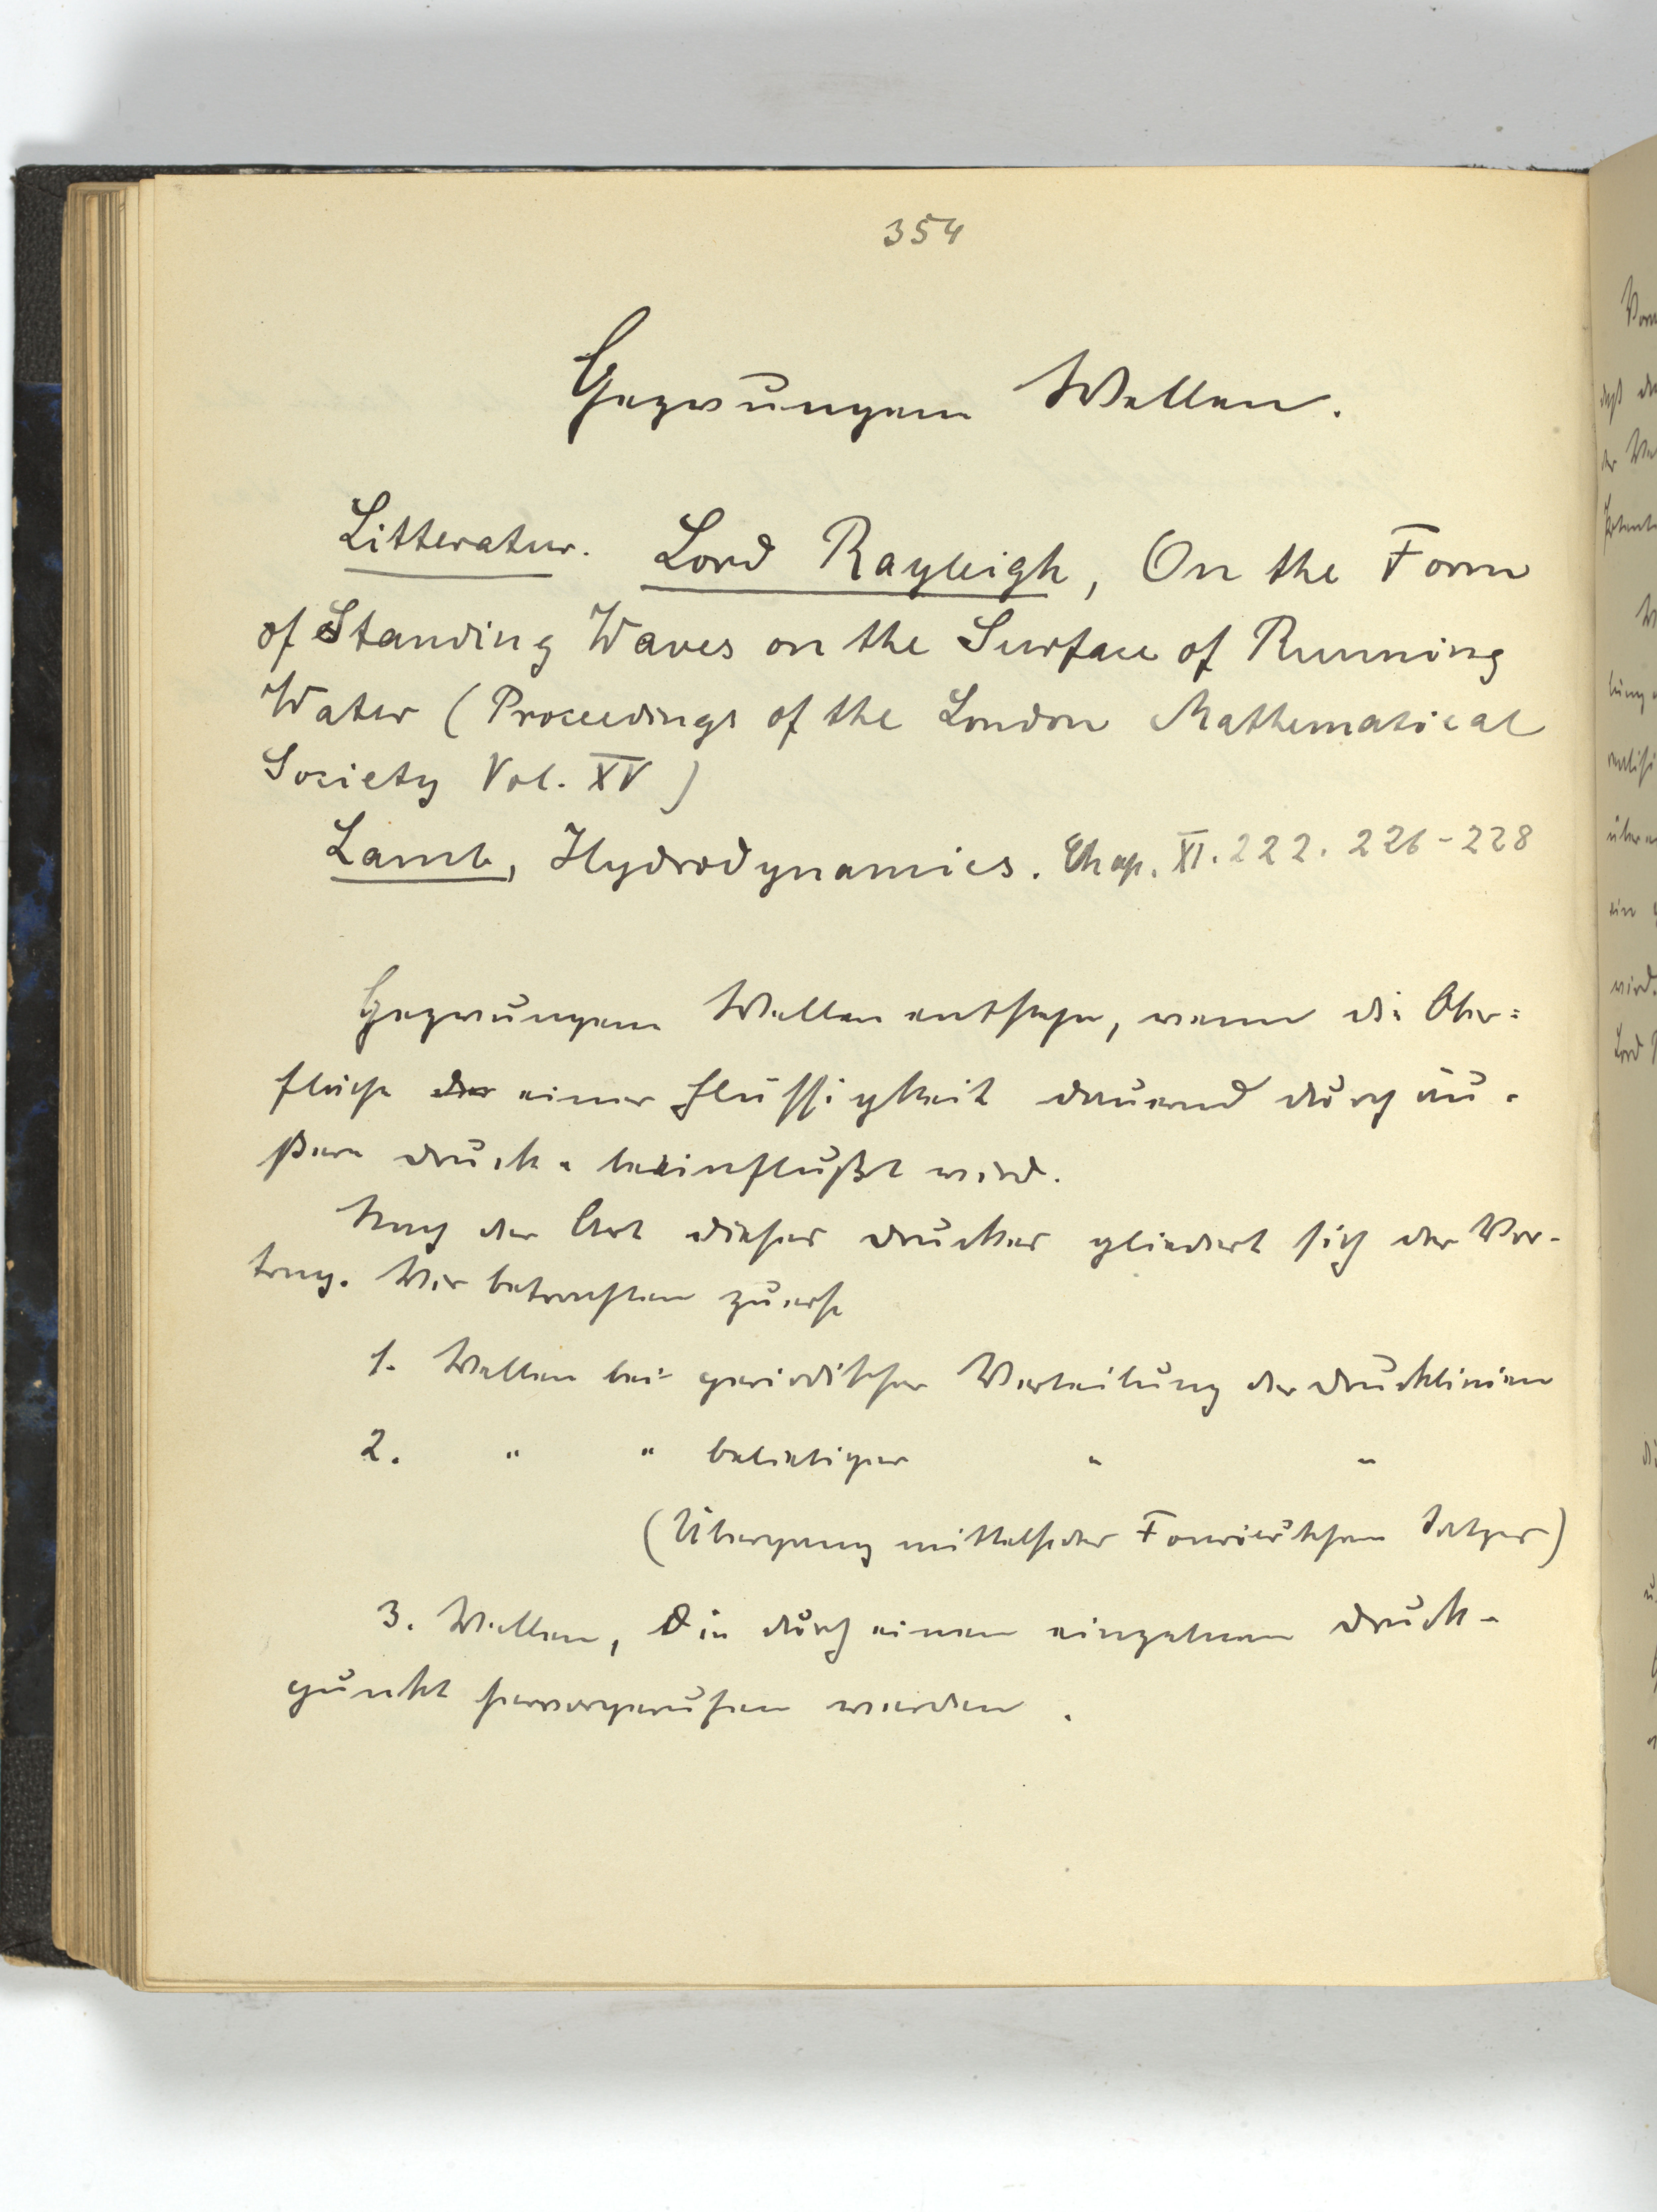 354
Gezwungene Wellen.
Litteratur. Lord Rayleigh, On the Form
of Standing Waves on the Surface of Running
Water (Proceedings of the London Mathematical
Society Vol. XV)
Lamb, Hydrodynamics. Chap. XI. 222. 226-228
Gezwungene Wellen entstehen, wenn die Ober=
fläche der einer Flüssigkeit dauernd durch äu-
ßere Drucke beeinflußt wird.
Nach der Art dieser Drucke gliedert sich der Vor-
trag. Wir betrachten zuerst
1. Wellen bei periodischer Verteilung der Drucklinien
2. " " beliebiger " "
(Übergang mittelst des Fourierschen Satzes)
3. Wellen, die durch einen einzelnen Druck-
punkt hervorgerufen werden.